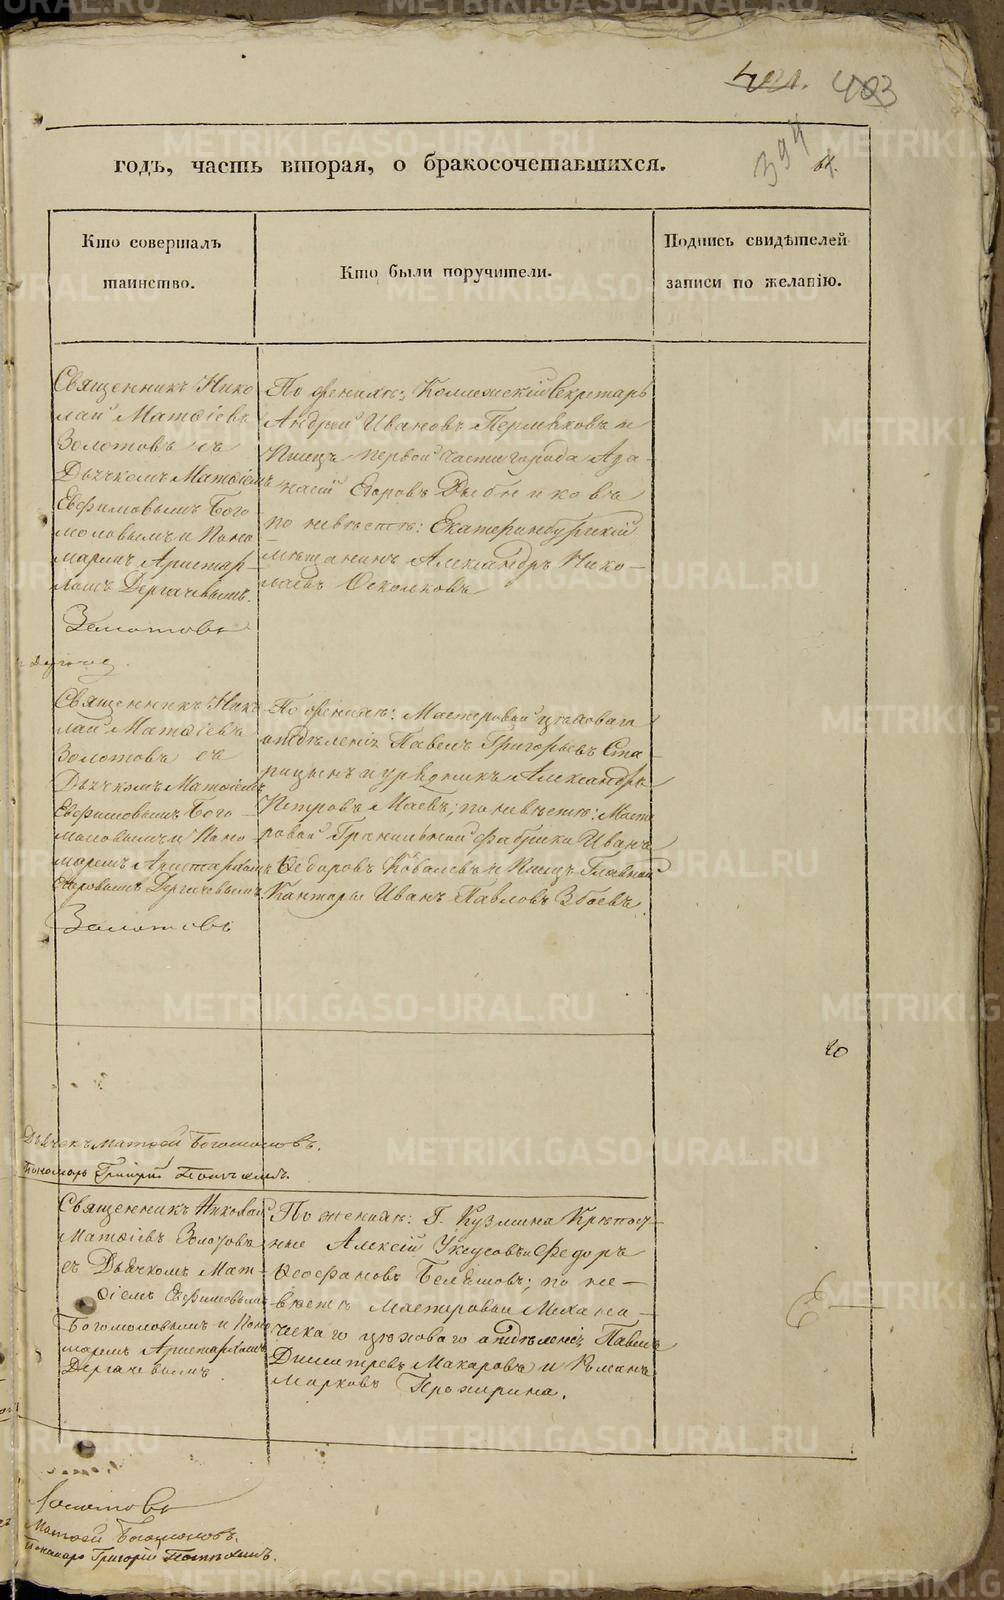 403
394
годъ, часть вторая, о бракосочетавшихся.
Кто совершалъ
таинство.
Кто были поручители.
Подпись свидѣтелей
записи по желанію.
Священникъ Нико
лай Матѳіевъ
Золотовъ съ
Дьячкомъ Матѳіемъ
Евфимовымъ Бого
моловымъ и Поно
маремъ Аристар-
хомъ Дергачевымъ.
Золотовъ
По женихѣ: Коллежскій Секретарь
Андрей Ивановъ Пермяковъ и
Писецъ первой части города Аѳа-
насій Егоровъ Рыбниковъ
по невѣстѣ: Екатеринбургскій
мѣщанинъ Александръ Нико-
лаевъ Осколковъ
Священникъ Нико
лай Матѳіевъ
Золотовъ съ
Дьячкомъ Матѳіемъ
Евфимовымъ Бого
моловымъ и Поно
маремъ Аристархомъ
Егоровымъ Дергачевымъ.
Золотовъ
По женихѣ: Мастеровой цѣховаго
отдѣленія Павелъ Григорьевъ Ста-
рицынъ и урядникъ Александръ
Петровъ Маевъ; по невѣстѣ: Масте
ровой Гранильной фабрики Иванъ
Ѳедоровъ Ковалевъ и Писецъ Главной
Канторы Иванъ Павловъ Збоевъ.
20
Дьячекъ Матѳей Богомоловъ.
Пономарь Григорій
Священникъ Николай
Матѳіевъ Золотовъ
съ Дьячкомъ Мат-
ѳіемъ Евфимовымъ
Богомоловымъ и Поно
маремъ Аристархомъ
Дергачевымъ.
По женихѣ: Г. Кузмина Крѣпост-
ные Алексій Уксусовъ и Федоръ
Ѳеофановъ; по не-
вѣстѣ Мастеровые Механи-
ческаго цѣховаго отдѣленія Павелъ
Димитревъ Макаровъ и Романъ
Марковъ
Золотовъ
Матѳей Богомоловъ.
Пономарь Григорій